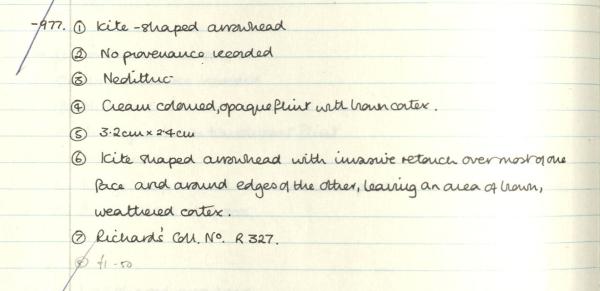 -977. ① Kite-shaped arrowhead
② No provenance recorded
③ Neolithic
④ Cream coloured, opaque flint with brown cortex.
⑤ 3.2cm x 2.4cm
⑥ Kite shaped arrowhead with invasive retouch over most of one
face and around edges of the other, leaving an area of brown,
weathered cortex.
⑦ Richards' Coll. No. R 327.
⑧ £1-50